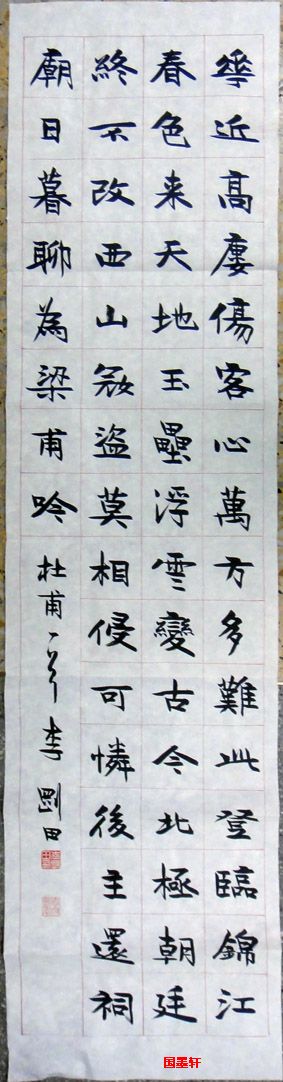 華近高廔傷客心萬方多難此登臨錦江
春色来天地玉壘浮雲變古今北極朝廷
終不改西山寇盜莫相侵可憐後主還祠
廟日暮聊為梁甫吟 杜甫 李剛田
国墨轩